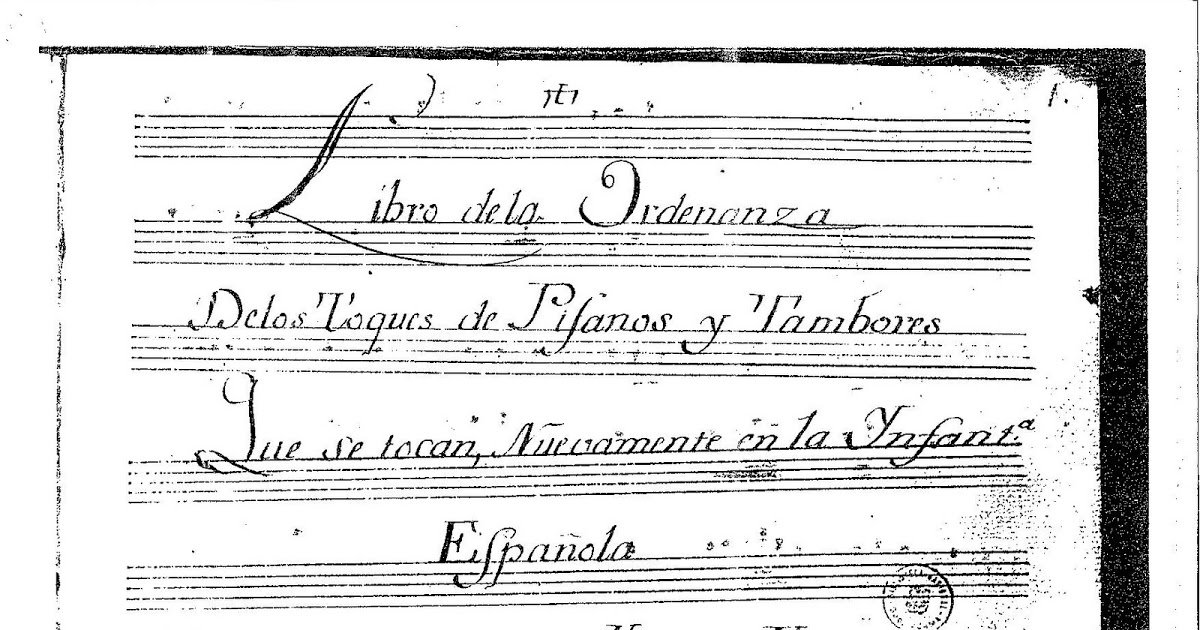 1.
Libro de la Ordenanza
Delos Toques de Pifanos y Tambores
Que se tocan, Nuevamente en la Ynfant.ª
Española